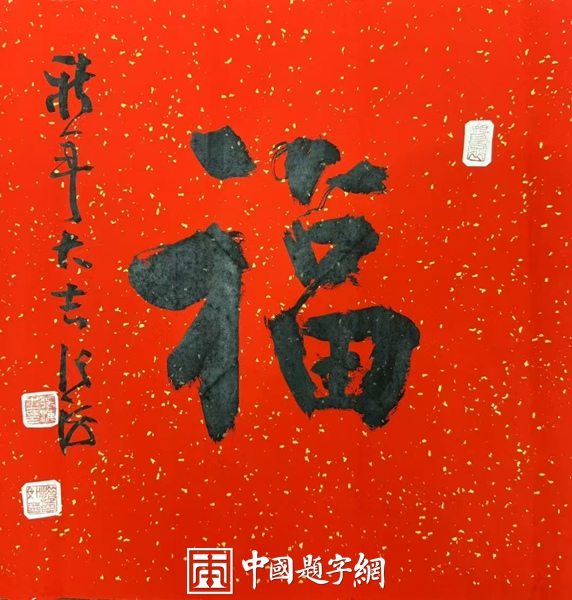 福
新年大吉
中國題字網